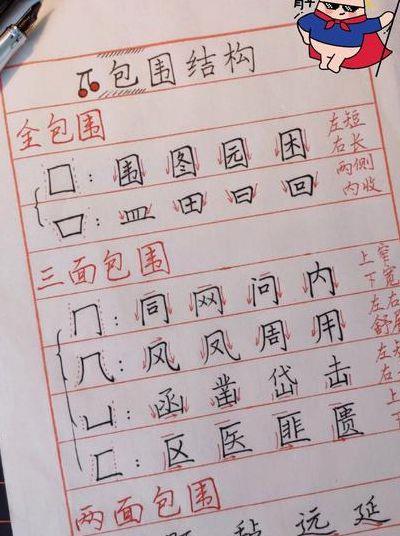 包围结构
全包围
左短
右长
囗：围图园困
两侧
内收
口：皿田曰回
三面包围
上窄
下宽
冂：同网问内
左右
几：风凤周用
左短
凵：函凿岱击
匚：区医匪匮
两面包围
远延